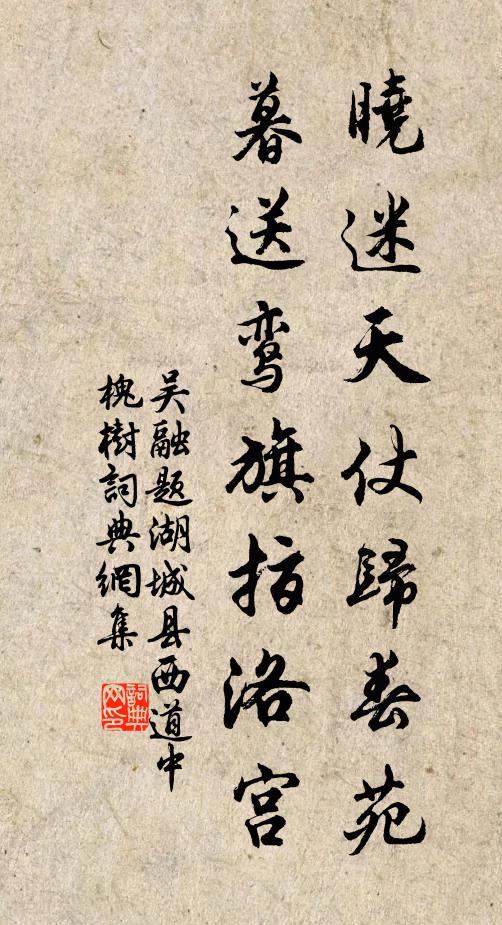 曉迷天仗歸春苑
暮送鸾旗指洛宫
吴融题湖城县西道中
槐樹詞典網集
詞典
网印